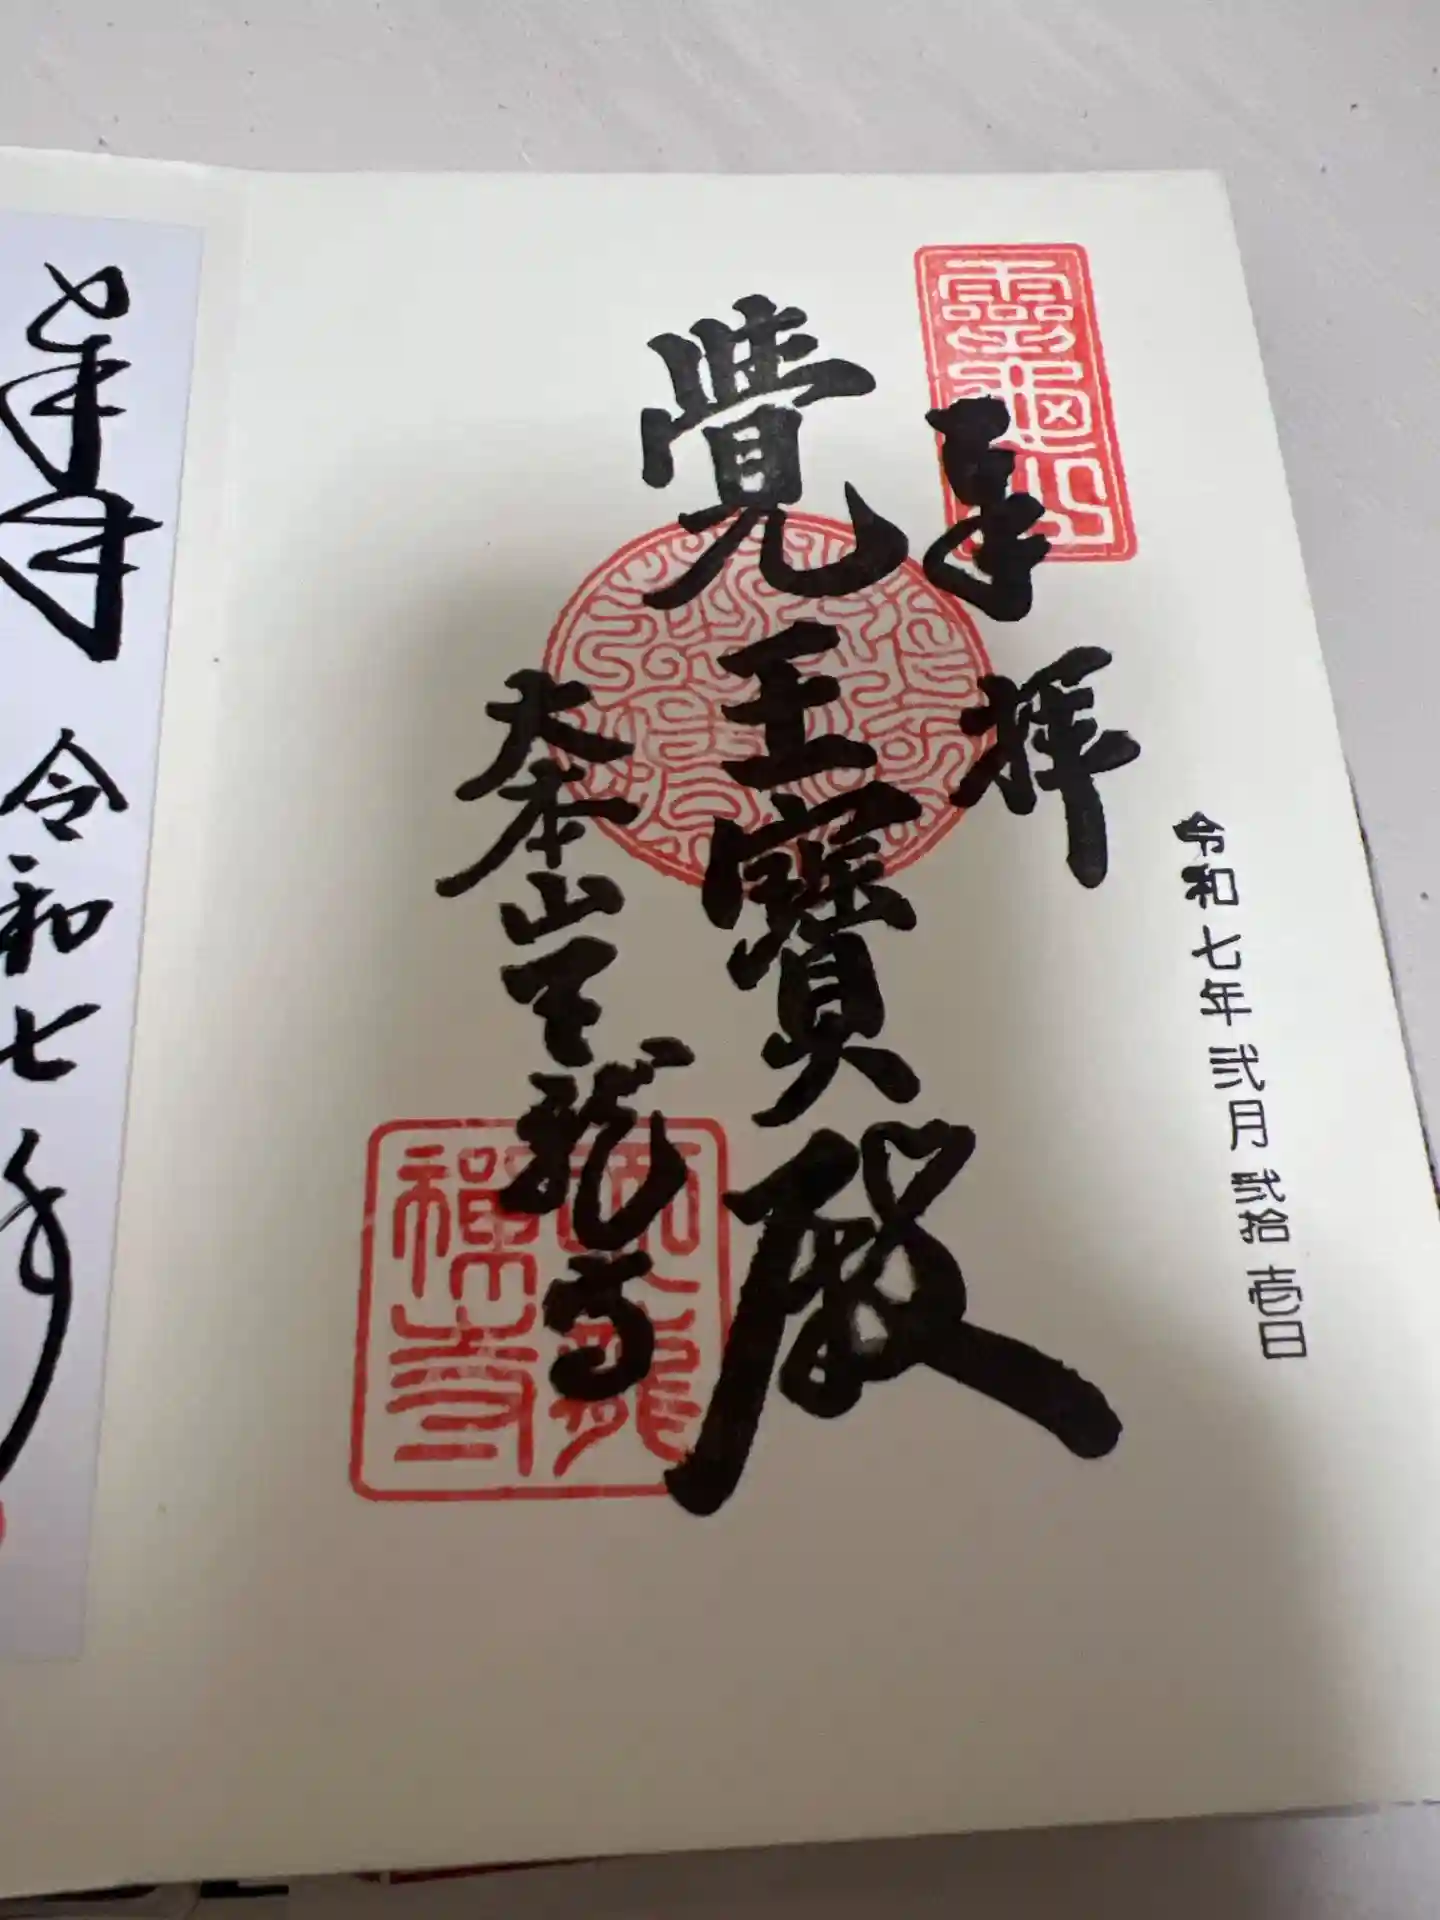 令和七年弐月弐拾壱日
靈龜山
奉拝
覺王寶殿
大本山天龍寺
天龍
禪寺
令和七年